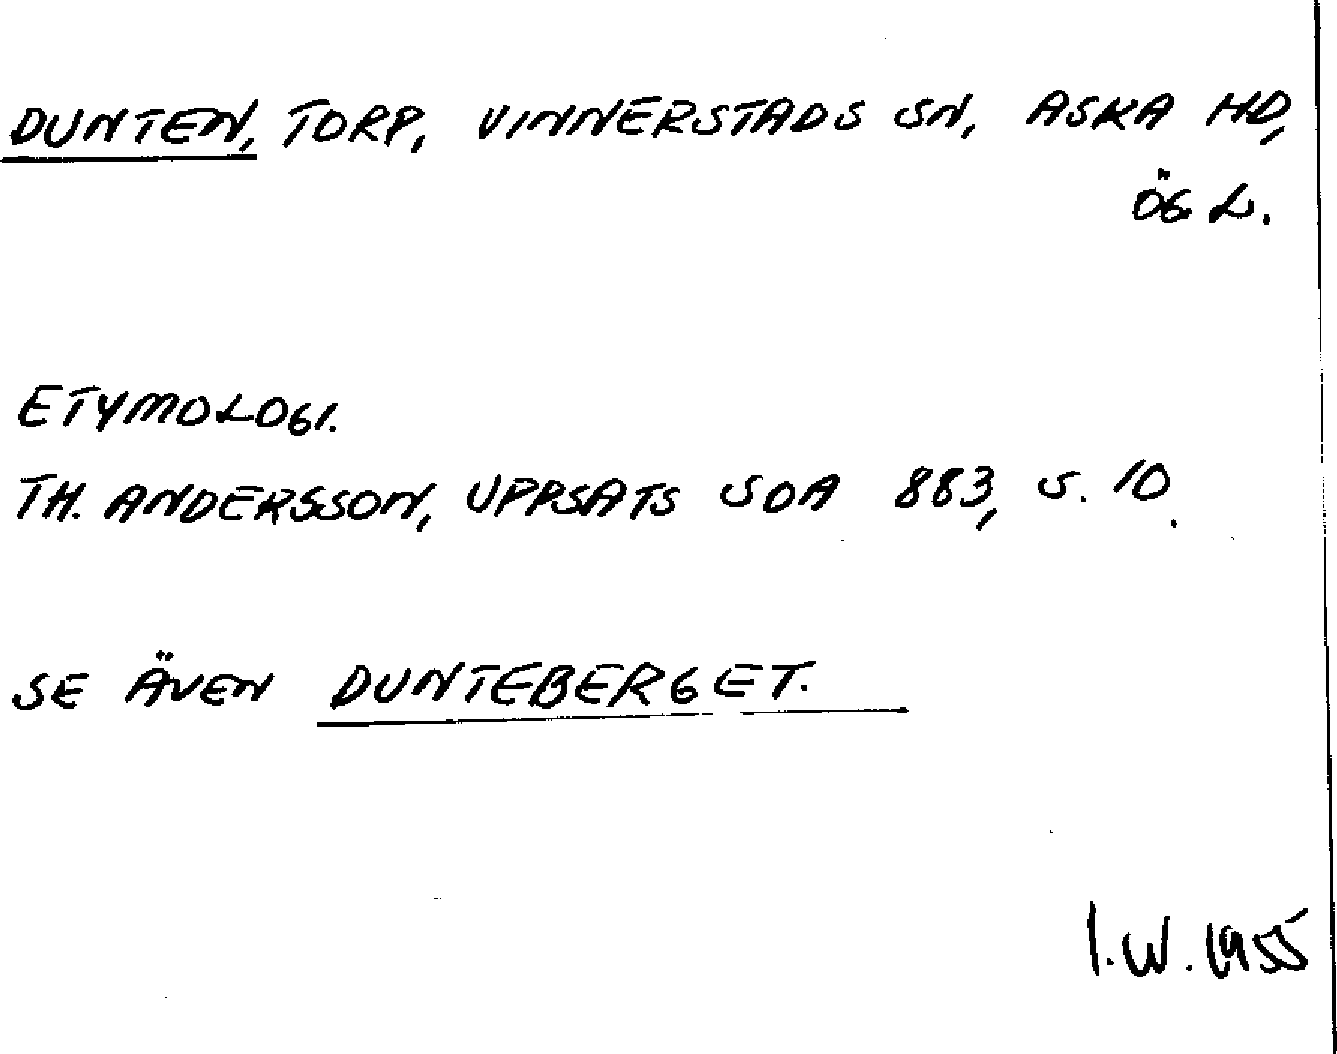 DUNTEN, TORP, VINNERSTADS SN, ASKA HD,
ÖG. L.
ETYMOLOGI.
TH. ANDERSSON, UPPSATS SOA 883, S. 10.
SE ÄVEN DUNTEBERGET.
I.W. 1955